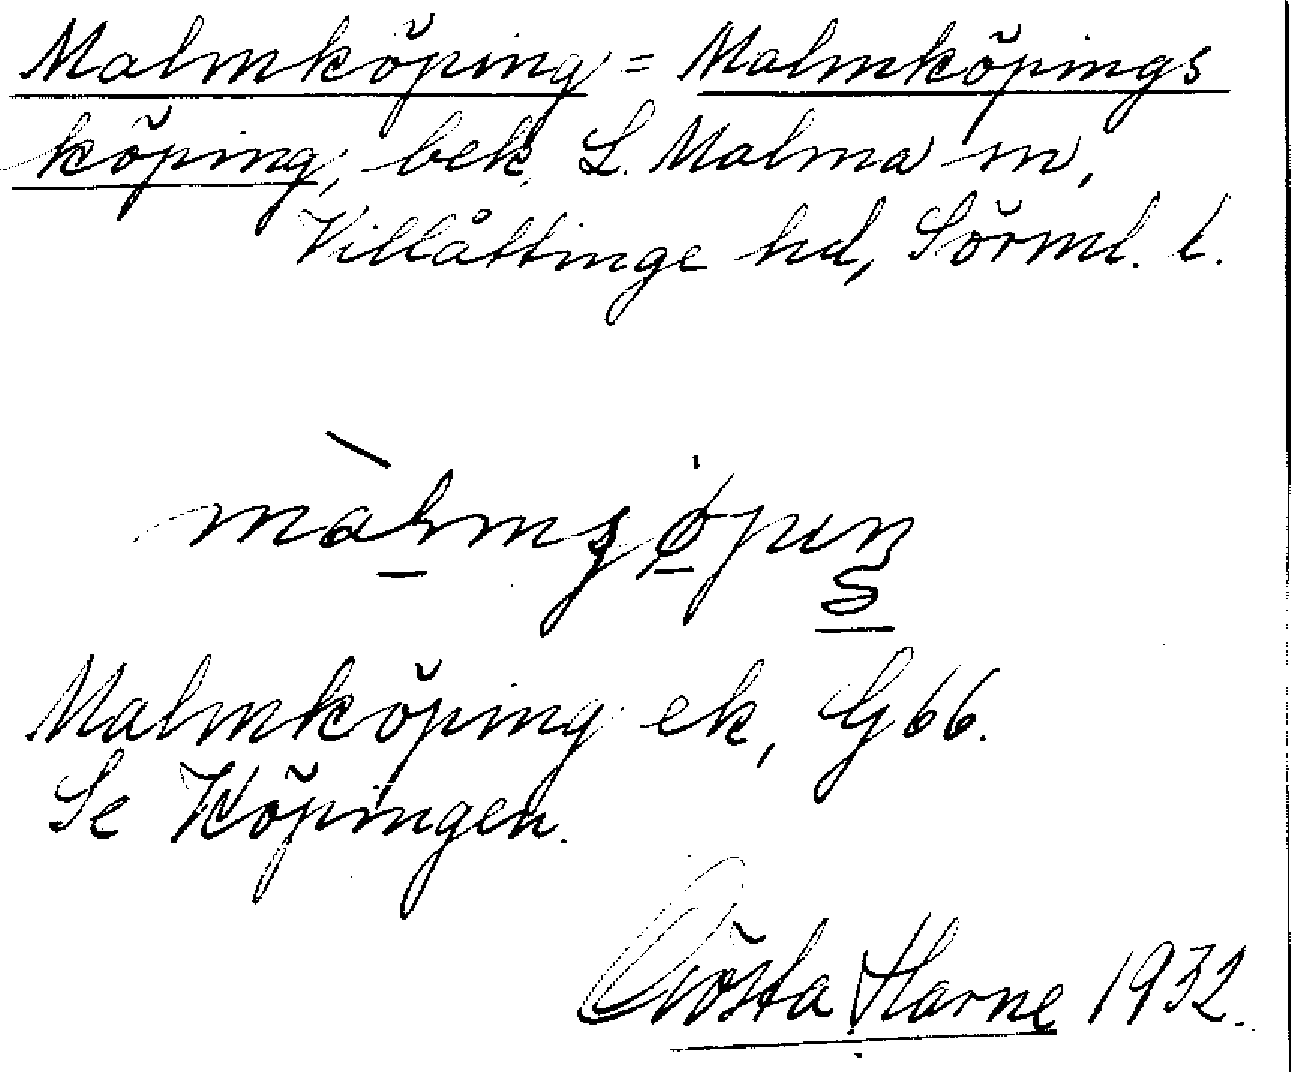 Malmköping = Malmköpings
köping, bek. L. Malma sn,
Villåttinge hd, Sörml. l.
Malmköping ek, G 66.
Se Köpingen.
Gösta Harne 1932.